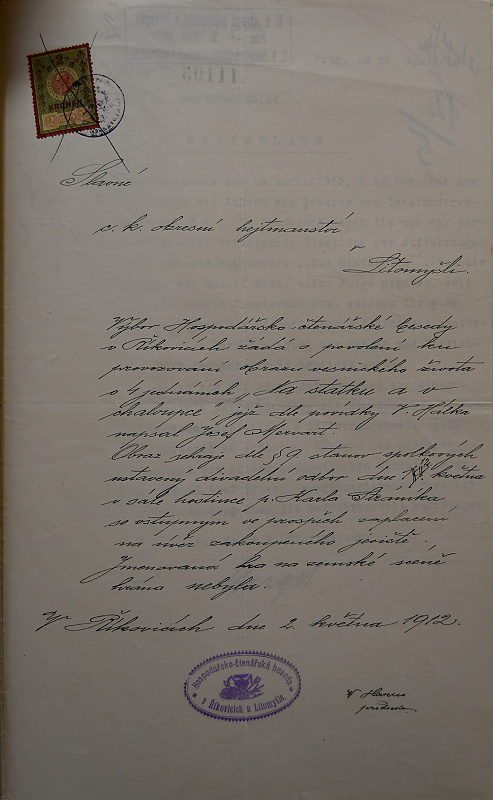 KRONE
Slavné
c. k. okresní hejtmanství
v
Litomyšli.
Výbor Hospodářsko-čtenářské besedy
v Říkovicích žádá o povolení ku
provozování Obrazu vesnického života
o 4 jednáních „Na statku a v
chaloupce", jejž dle povídky V. Hálka
napsal Josef Mervart.
Obraz sehraje dle § 9. stanov spolkových
ustavený divadelní odbor dne května
v sále hostince p. Karla Stráníka
se vstupným ve prospěch zaplacení
na úvěr zakoupeného jeviště.
Jmenovaná hra na zemské scéně
hrána nebyla.
V Říkovicích dne 2. května 1912.
Hospodářsko-čtenářská beseda
v Říkovicích u Litomyšle.
11105